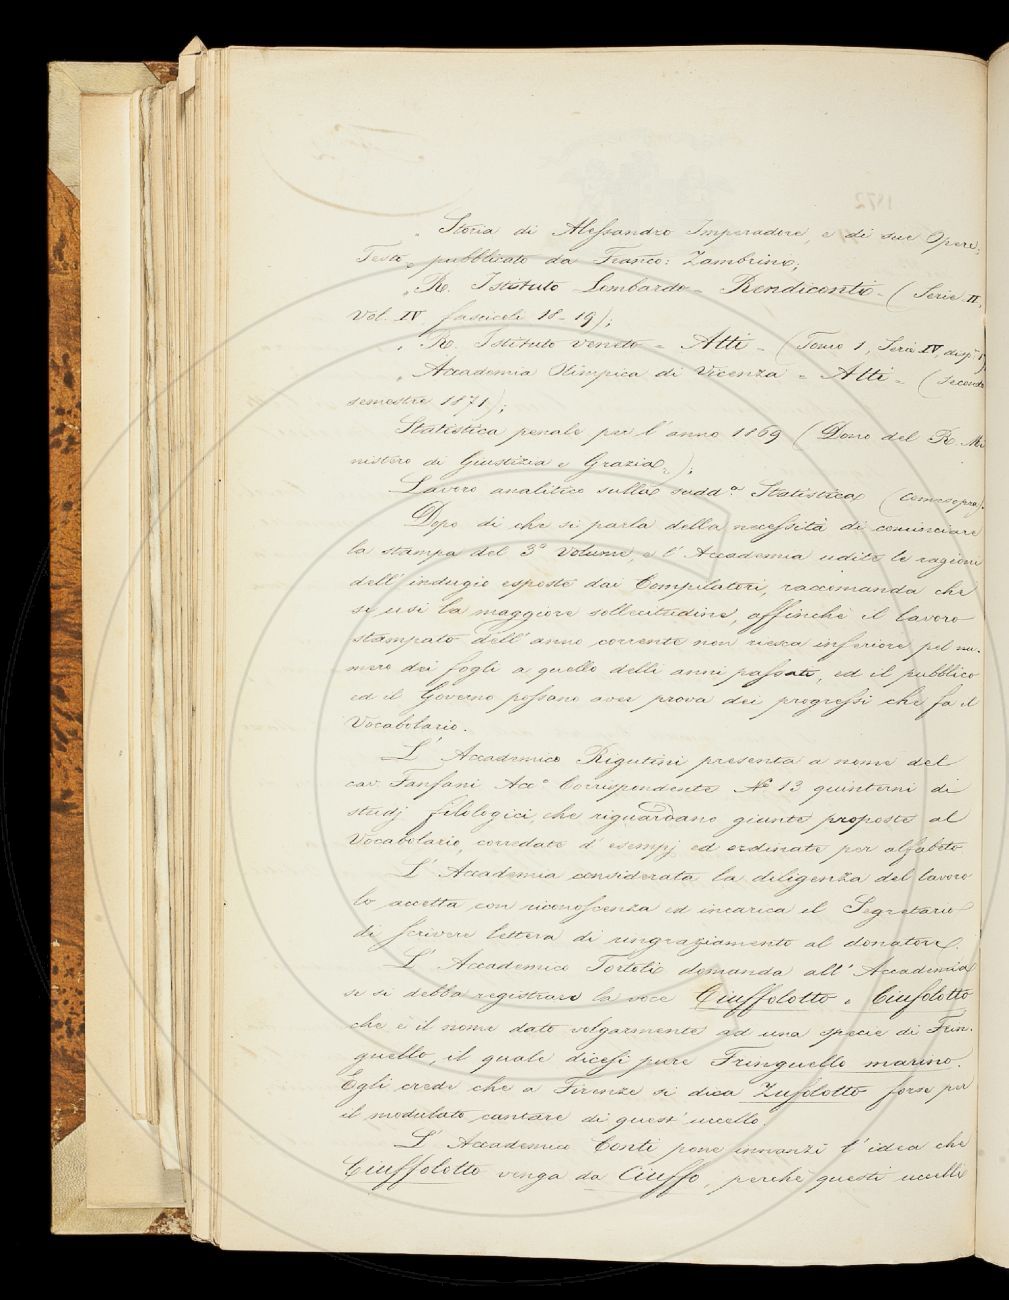 „ Storia di Alessandro Imperadore, e di sue Opere;
Testo pubblicato da Franco: Zambrino;
„ R. Istituto Lombardo = Rendiconti = (Serie II,
Vol. IV fascicoli 18-19);
„ R. Istituto Veneto = Atti = (Tomo 1, Serie IV, disp. 1ª);
„ Accademia Olimpica di Vicenza = Atti = (secondo
semestre 1871);
Statistica penale per l'anno 1869 (Dono del R. Mi-
nistero di Giustizia e Grazia);
Lavoro analitico sulla sudd.ª Statistica (come sopra).
Dopo di che si parla della necessità di cominciare
la stampa del 3º Volume, e l'Accademia udite le ragioni
dell'indugio esposte dai Compilatori, raccomanda che
si usi la maggiore sollecitudine, affinchè il lavoro
stampato dell'anno corrente non riesca inferiore pel nu-
mero dei fogli a quello delli anni passati, ed il pubblico
ed il Governo possano aver prova dei progressi che fa il
Vocabolario.
L'Accademico Rigutini presenta a nome del
cav. Fanfani Acc.º Corrispondente Nº 13 quinterni di
studj filologici, che riguardano giunte proposte al
Vocabolario, corredate d'esempj ed ordinate per alfabeto
L'Accademia considerata la diligenza del lavoro
lo accetta con riconoscenza ed incarica il Segretario
di scrivere lettera di ringraziamento al donatore.
L'Accademico Tortoli domanda all'Accademia
se si debba registrare la voce Ciuffolotto e Ciufolotto
che è il nome dato volgarmente ad una specie di Frin-
guello, il quale dicesi pure Fringuello marino.
Egli crede che a Firenze si dica Zufolotto forse per
il modulato cantare di quest'uccello.
L'Accademico Conti pone innanzi l'idea che
Ciuffolotto venga da Ciuffo, perchè questi uccelli